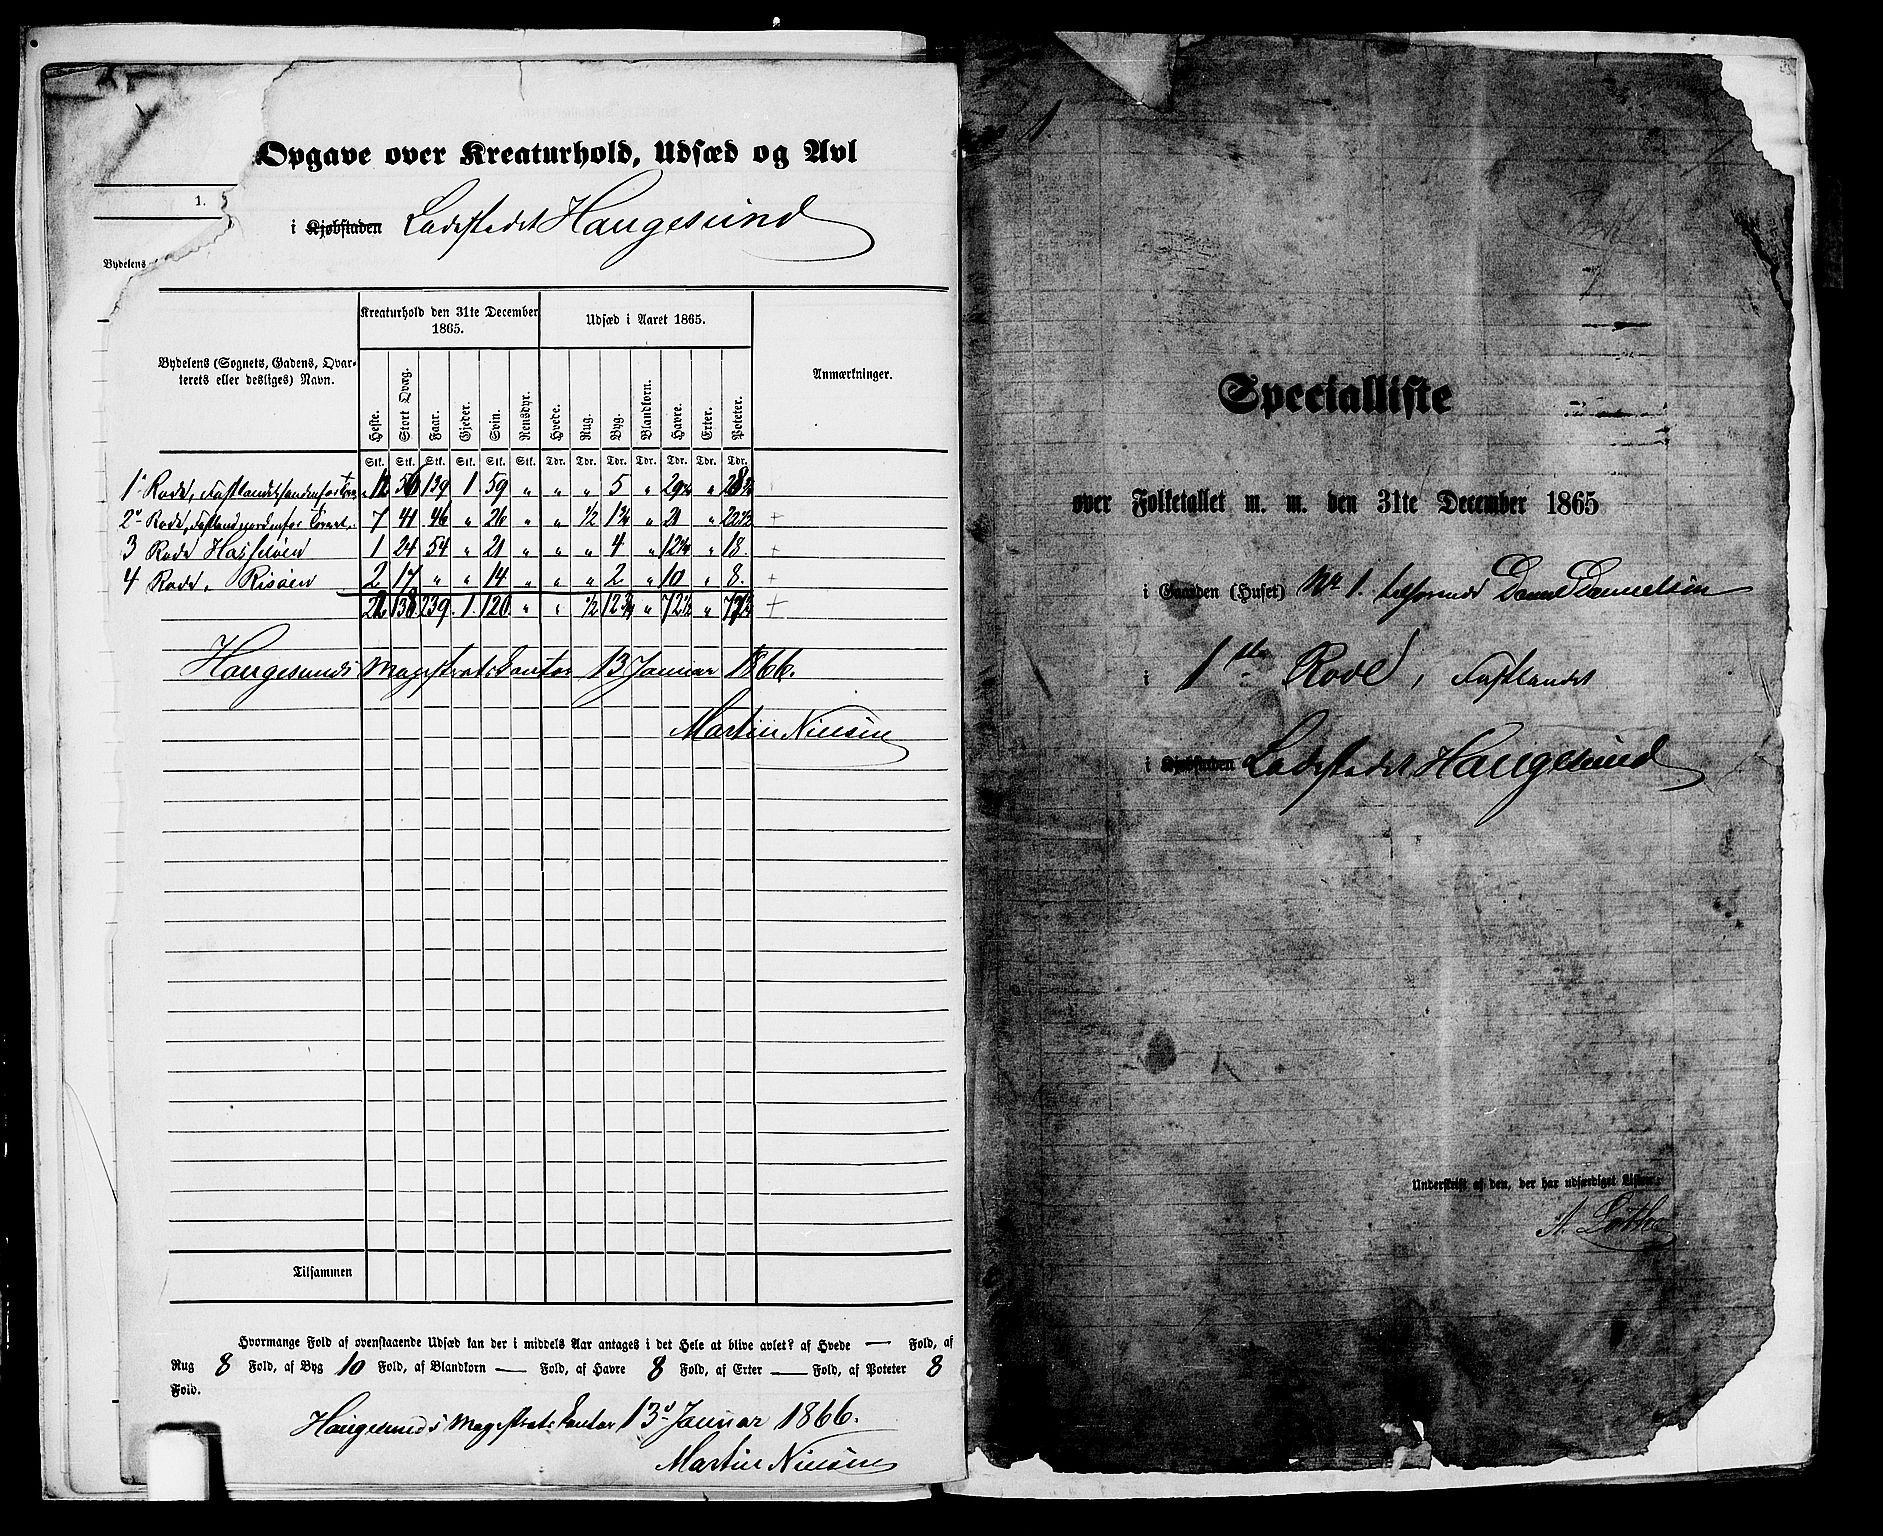 Opgave over Kreaturhold, Udsæd og Avl
1.
i Kjøbstaden Ladestedet Haugesund
Bydelens
Kreaturhold den 31te December 1865.
Udsæd i Aaret 1865.
Bydelens (Sognets, Gadens, Qvar-
terets eller desliges) Navn.
Anmærkninger.
Heste. Stort Qvæg. Faar. Gjeder. Svin. Rensdyr. Hvede. Rug. Byg. Blandkorn. Havre. Erter. Poteter.
Stk. Stk. Stk. Stk. Stk. Stk. Tdr. Tdr. Tdr. Tdr. Tdr. Tdr. Tdr.
1ͤ Rode, Fastlandet søndenfor 12 56 139 1 59 " " " 5 " "
2ͤ Rode, Fastland nordenfor Torvet 7 41 46 " 26 " " 1/2 1 3/4 " 21 " 22 1/2 +
3 Rode Hasseløen 1 24 54 " 21 " " " 4 " " 18. +
4 Rode, Risøen 2 17 " " 14 " " " 2 " 10 " 8. +
22 138 239. 1. 120 " " 1/2 12 3/4 " 72 1/2 " +
Haugesunds Magistratskontor 13 Januar 1866.
Martin Nielsen
Tilsammen
Hvormange Fold af ovenstaaende Udsæd kan der i middels Aar antages i det Hele at blive avlet? af Hvede — Fold, af
Rug 8 Fold, af Byg 10 Fold, af Blandkorn — Fold, af Havre 8 Fold, af Erter — Fold, af Poteter 8
Fold.
Haugesunds Magistratskontor 13 Januar 1866.
Martin Nielsen
1.
Specialliste
over Folketallet m. m. den 31te December 1865
i Gaarden (Huset) No 1. tilhørende Danielsen
i 1ste Rode, Fastlandet
i Kjøbstaden Ladestedet Haugesund
Underskrift af den, der har udfærdiget Listen:
A. Løthe